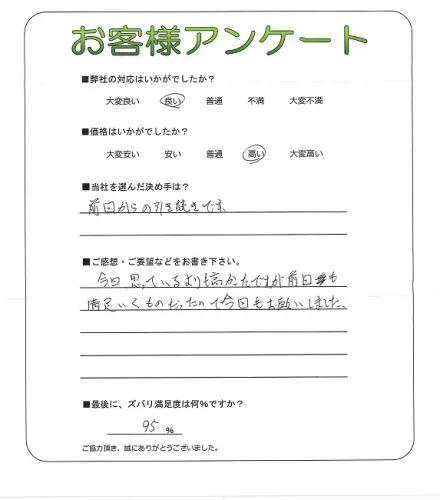 お客様アンケート
■弊社の対応はいかがでしたか?
大変良い 良い 普通 不満 大変不満
■価格はいかがでしたか?
大変安い 安い 普通 高い 大変高い
■当社を選んだ決め手は?
前回からの引き続きです
■ご感想・ご要望などをお書き下さい。
今回思っているより高かったですが前回も
満足いくものだったので今回もお願いしました。
■最後に、ズバリ満足度は何%ですか?
95 %
ご協力頂き、誠にありがとうございました。